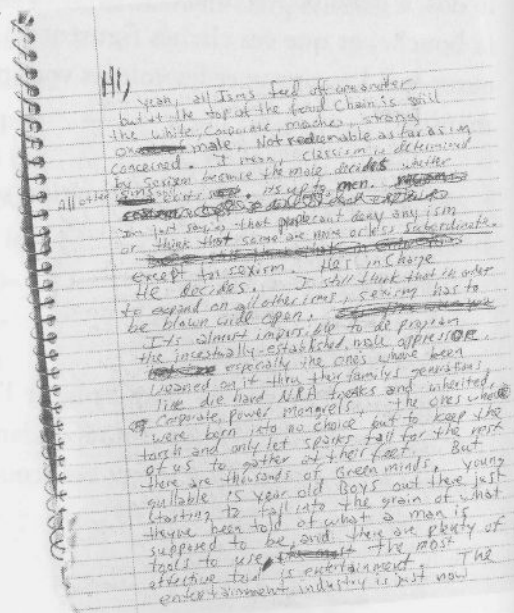 Hi,
yeah, all Isms feed off one another,
but at the top of the food chain is still
the white, corporate, macho, strong
male. Not redeemable as far as im
concerned. I mean, classism is determined
by sexism because the male decides whether
All other isms exist. its up to men.
Im just saying that people cant deny any ism
or think that some are more or less subordinate.
except for sexism. Hes in charge
He decides. I still think that in order
to expand on all other isms, sexism has to
be blown wide open.
Its almost impossible to de program
the incestually-established, male oppressor.
especially the ones whove been
weaned on it thru their familys generations,
like die hard N.R.A freaks and inherited,
Corporate power mongrels, the ones whove
were born into no choice but to keep the
torch and only let sparks fall for the rest
of us to gather at their feet. But
there are thousands of Green minds, young
gullable 15 year old Boys out there just
starting to fall into the grain of what
theyve been told of what a man is
supposed to be, and there are plenty of
tools to use the most
effective tool is entertainment. The
entertainment industry is just now